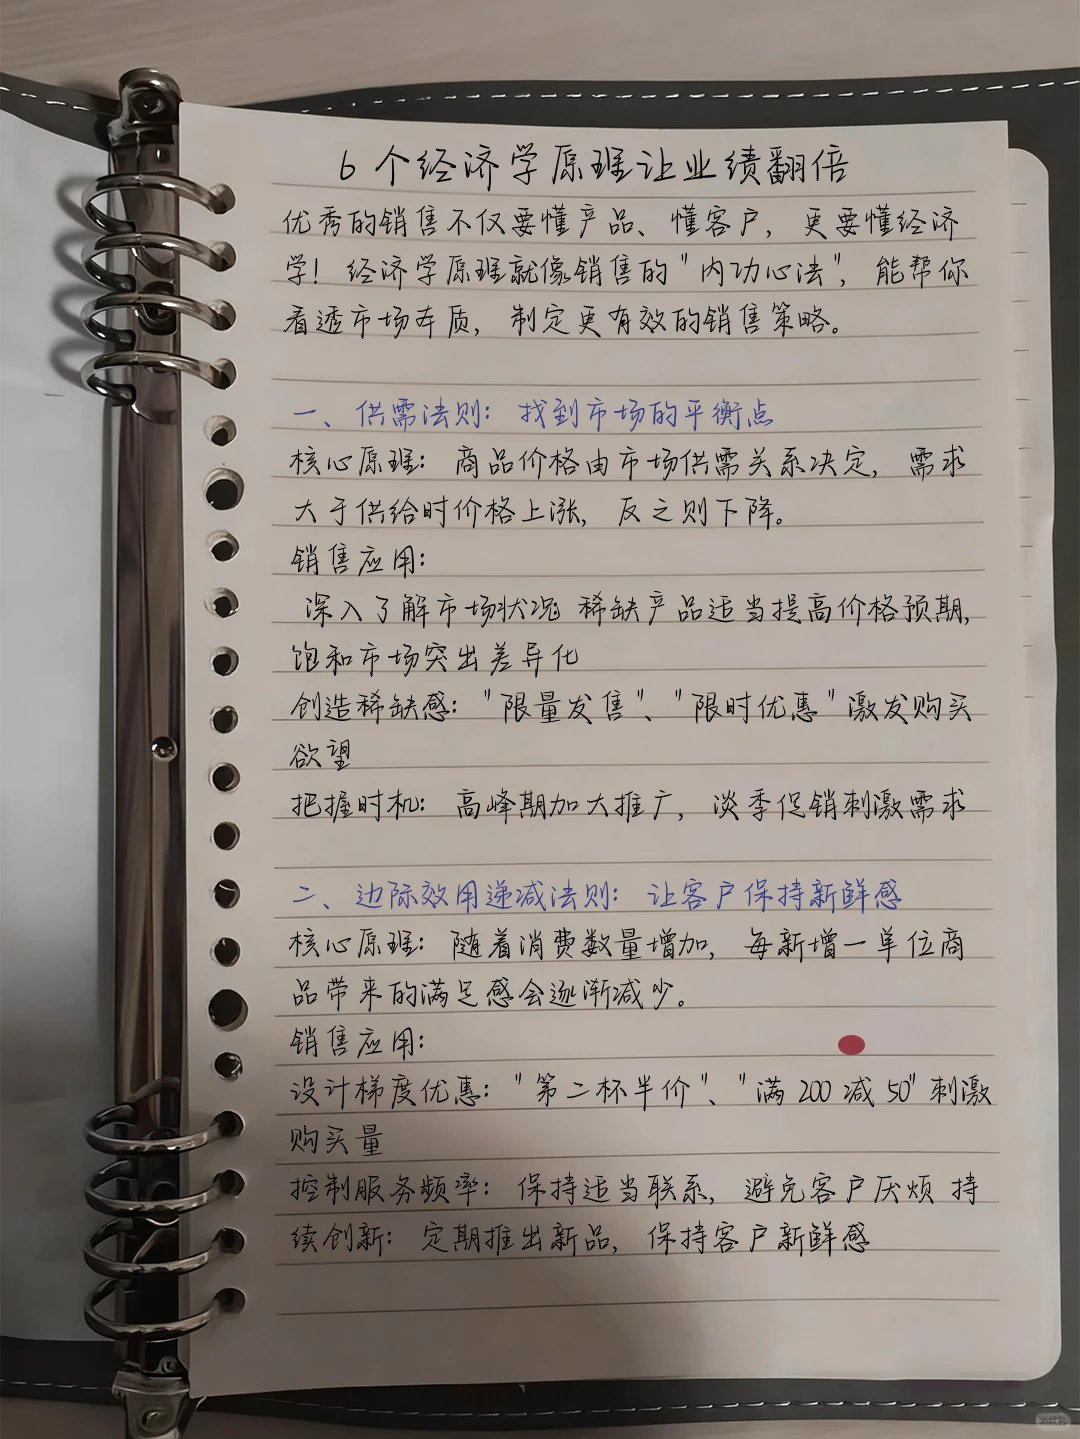 6个经济学原理让业绩翻倍
优秀的销售不仅要懂产品、懂客户，更要懂经济
学！经济学原理就像销售的"内功心法"，能帮你
看透市场本质，制定更有效的销售策略。
一、供需法则：找到市场的平衡点
核心原理：商品价格由市场供需关系决定，需求
大于供给时价格上涨，反之则下降。
销售应用：
深入了解市场状况 稀缺产品适当提高价格预期，
饱和市场突出差异化
创造稀缺感："限量发售"、"限时优惠"激发购买
欲望
把握时机：高峰期加大推广，淡季促销刺激需求
二、边际效用递减法则：让客户保持新鲜感
核心原理：随着消费数量增加，每新增一单位商
品带来的满足感会逐渐减少。
销售应用：
设计梯度优惠："第二杯半价"、"满200减50"刺激
购买量
控制服务频率：保持适当联系，避免客户厌烦 持
续创新：定期推出新品，保持客户新鲜感